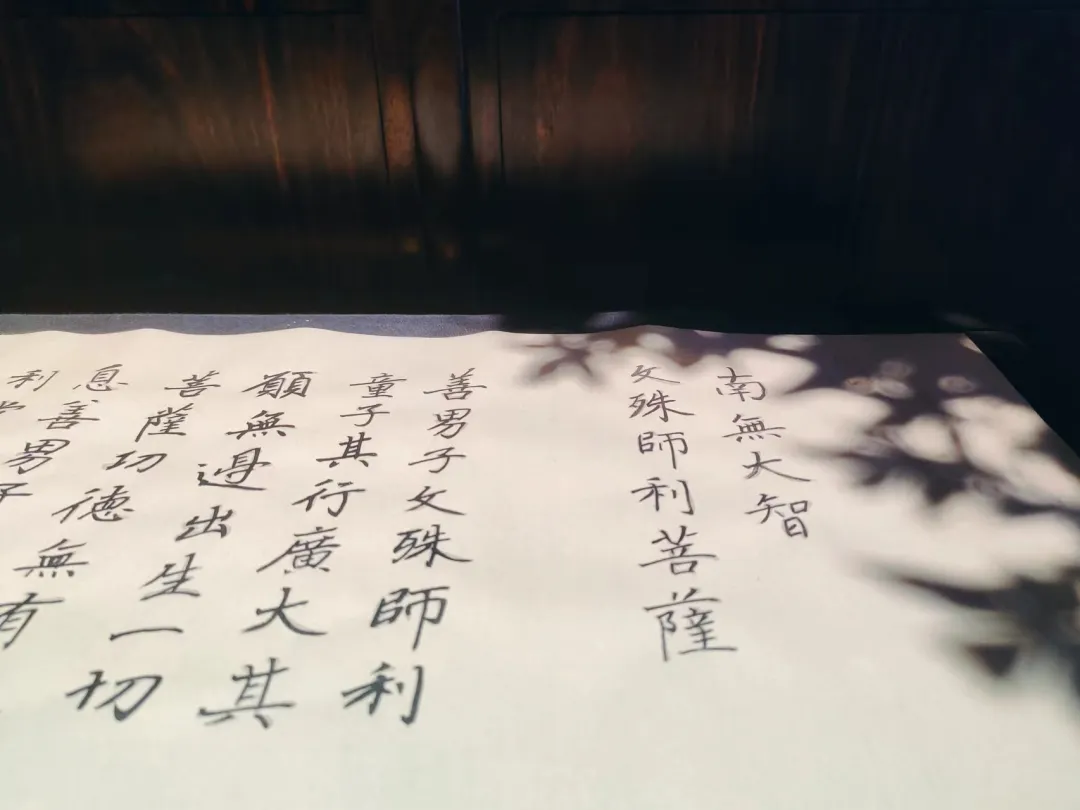 南無大智
文殊師利菩薩
善男子文殊師利
童子其行廣大其
願無邊出生一切
菩薩功德無有
息善男子
利